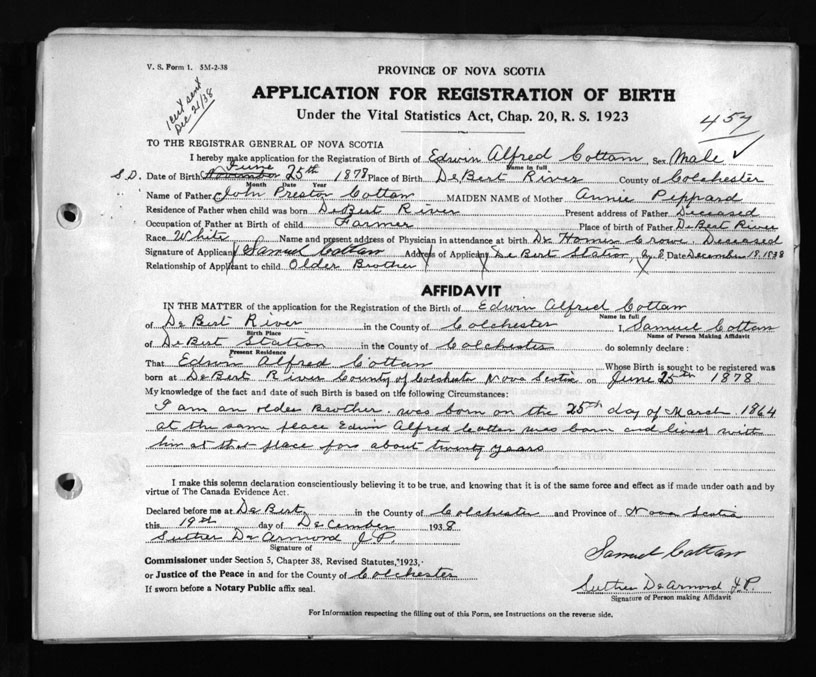 V. S. Form 1. 5M-2-38
1 cert sent
Dec 21/38
PROVINCE OF NOVA SCOTIA
APPLICATION FOR REGISTRATION OF BIRTH
Under the Vital Statistics Act, Chap. 20, R. S. 1923
457
TO THE REGISTRAR GENERAL OF NOVA SCOTIA
I hereby make application for the Registration of Birth of Edwin Alfred Cottam, Sex Male ✓
Name in full
June
S.D. Date of Birth November 25th 1878 Place of Birth DeBert River County of Colchester
Month Date Year
Name of Father John Preston Cottam MAIDEN NAME of Mother Annie Peppard
Residence of Father when child was born DeBert River Present address of Father Deceased
Occupation of Father at Birth of child Farmer Place of birth of Father DeBert River
Race White Name and present address of Physician in attendance at birth Dr. Homer Crowe. Deceased
Signature of Applicant Samuel Cottam Address of Applicant De Bert Station, Date December 19. 1938
Relationship of Applicant to child Older Brother
AFFIDAVIT
IN THE MATTER of the application for the Registration of the Birth of Edwin Alfred Cottam
Name in full
of De Bert River in the County of Colchester I, Samuel Cottam
Birth Place Name of Person Making Affidavit
of DeBert Station in the County of Colchester do solemnly declare :
Present Residence
That Edwin Alfred Cottam Whose Birth is sought to be registered was
born at DeBert River County of Colchester Nova Scotia on June 25th 1878
My knowledge of the fact and date of such Birth is based on the following Circumstances:
I am an older Brother. was born on the 25th day of March 1864
at the same place Edwin Alfred Cottam was born and lived with
him at that place for about twenty years
I make this solemn declaration conscientiously believing it to be true, and knowing that it is of the same force and effect as if made under oath and by
virtue of The Canada Evidence Act.
Declared before me at DeBert in the County of Colchester and Province of Nova Scotia
this 19th day of December 1938
Suther DeArmond J.P.
Signature of
Commissioner under Section 5, Chapter 38, Revised Statutes, 1923,
or Justice of the Peace in and for the County of Colchester
If sworn before a Notary Public affix seal.
Samuel Cottam
Suther DeArmond J.P.
Signature of Person making Affidavit
For Information respecting the filling out of this Form, see Instructions on the reverse side.